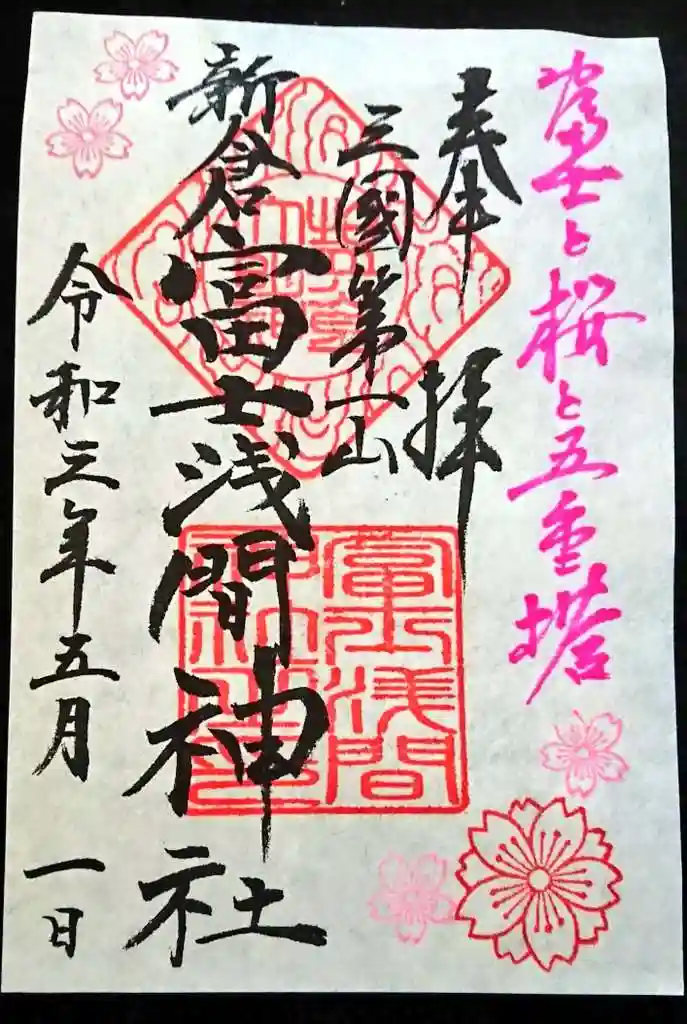 富士と桜と五重塔
奉拝
三國第一山
新倉富士浅間神社
令和三年五月一日
富士浅間